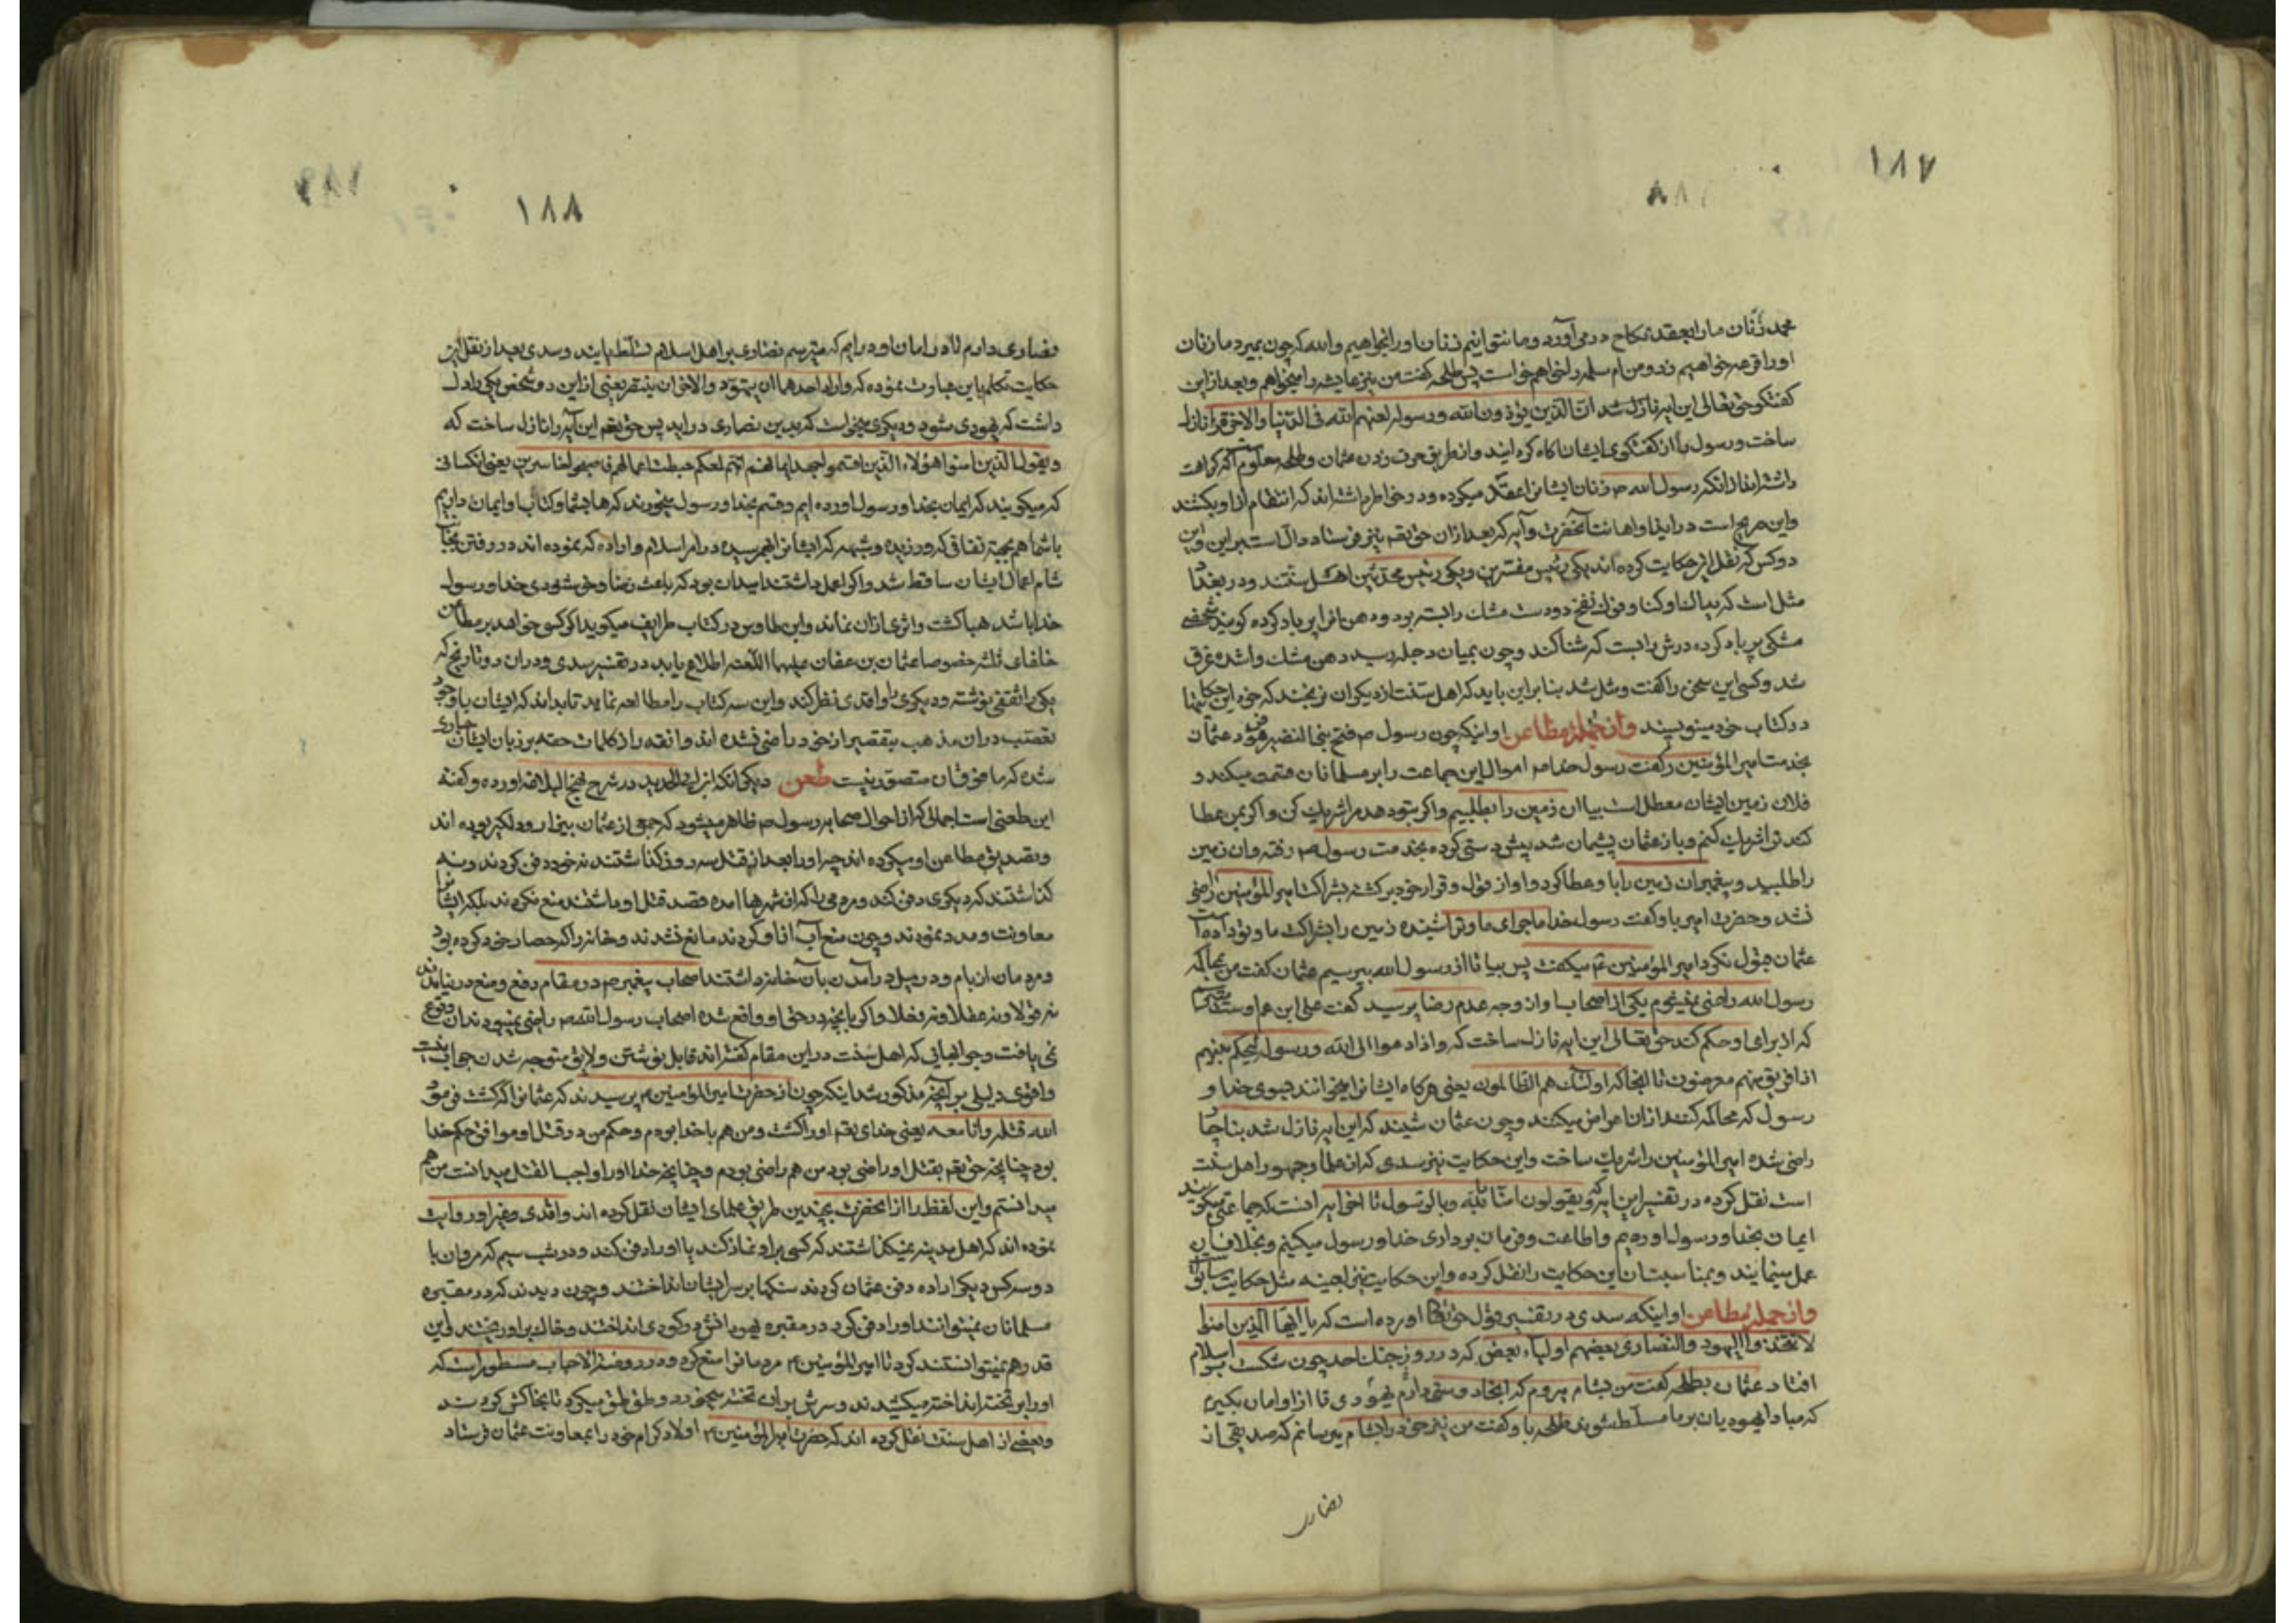 ١٨٧
محمد زنان ما را بعقد نکاح در می آورد و ما نتوانیم زنان او را نخواهیم والله که چون بمیرد ما زنان
او را قرعه خواهیم زد و من ام سلمه را خواهم خواست پس طلحه کفت من نیز عایشه را میخواهم و بعد از این
کفتکو حق تعالی این ایه نازل شد ان الذین یؤذون الله و رسوله لعنهم الله فی الدنیا والاخرة را نازل
ساخت و رسول را از کفتکوی ایشان اکاه کردانید و از طریق حرف زدن عثمان و طلحه معلوم که کراهت
داشته اند از انکه رسول الله ص زنان ایشانرا عقد میکرده و در خاطر داشته اند که انتقام از او بکشند
و این صریح است در ایذا و اهانت آنحضرت و آیه که بعد از ان حق تعه نیز فرستاد دال است بر این و این
دو کس که نقل این حکایت کرده اند یکی رئیس مفسرین و یکی رئیس محدثین اهل سنتند و در بغداد
مثل است که یداک اوکتا و فوک نفخ دو دست مشک را بسته بود و دهن انرا پر باد کرده کویند شخصی
مشکی پر باد کرده درش را بست که شنا کند و چون بمیان دجله رسید دهن مشک وا شده غرق
شد و کسی این سخن را کفت و مثل شد بنا براین باید که اهل سنت از دیکران نرنجند که خود این حکایتها
در کتاب خود مینویسند وازجمله مطاعن او اینکه چون رسول ص فتح بنی النضیر فرمود عثمان
بخدمت امیر المؤمنین کفت رسول خدا ص اموال این جماعت را بر مسلمانان قسمت میکند و
فلان زمین ایشان معطل است بیا ان زمین را بطلبیم و اکر بتو دهد مرا شریک کن و اکر بمن عطا
کند ترا شریک کنم و باز عثمان پشیمان شد پیش دستی کرده بخدمت رسول ص رفته و ان زمین
را طلبید و پیغمبر ان زمین را با و عطا کرد و او از قول و قرار خود برکشته بشراکت امیر المؤمنین راضی
نشد و حضرت امیر باو کفت رسول خدا ماجرای ما و ترا شنیده زمین را بشراکت ما و تو داده است
عثمان قبول نکرد امیر المؤمنین ع میکفت پس بیا تا از رسول الله بپرسیم عثمان کفت من بمحاکمه
رسول الله راضی نمیشوم یکی از اصحاب او از وجه عدم رضا پرسید کفت علی ابن عم اوست
که از برای او حکم کند حق تعالی این ایه نازل ساخت که واذا دعوا الی الله و رسوله لیحکم بینهم
اذا فریق منهم معرضون تا انجا که اولئک هم الظالمون یعنی هرکاه ایشانرا بخوانند بسوی خدا و
رسول که محاکمه کنند از ان اعراض میکنند و چون عثمان شنید که این ایه نازل شد بناچار
راضی شده امیر المؤمنین را شریک ساخت و این حکایت نیز سدی که از عظما و جمهور اهل سنت
است نقل کرده در تفسیر این ایه که و یقولون امنا بالله و بالرسول تا اخر ایه انست که جماعتی میکویند
ایمان بخدا و رسول اورده‌یم و اطاعت و فرمان برداری خدا و رسول میکنیم و بخلاف ان
عمل مینمایند و بمناسبت ان این حکایت را نقل کرده و این حکایت نیز بعینه مثل حکایت سابق
وازجمله مطاعن او اینکه سدی در تفسیر قول حق تعا اورده است که یا ایها الذین امنوا
لا تتخذوا الیهود والنصاری بعضهم اولیاء بعض که در روز جنک احد چون شکست بر اسلام
افتاد عثمان بطلحه کفت من بشام میروم که انجا دوستی دارم یهودی تا از او امان بکیرم
که مبادا یهودیان بر ما مسلط شوند طلحه باو کفت من نیز خود را بشام میرسانم که صدیقی از
نصاری
١٨٨
نصاری دارم تا در امان او درایم که میترسم نصاری بر اهل اسلام تسلط یابند و سدی بعد از نقل این
حکایت تکلم باین عبارت نموده که واراد احدهما ان یتهود والاخر ان یتنصر یعنی از این دو شخص یکی اراده
داشت که یهودی شود و دیکری میخواست که بدین نصاری دراید پس حق تعه این آیه را نازل ساخت که
ویقول الذین امنوا هؤلاء الذین اقسموا بالله جهد ایمانهم انهم لمعکم حبطت اعمالهم فاصبحوا خاسرین یعنی انکسانی
که میکویند که ایمان بخدا و رسول اورده ایم و قسم بخدا و رسول میخورند که ها بشما و کتاب او ایمان داریم
با شما هم بجهة نفاقی که ورزیده و شبهه که ایشانرا بهم رسیده در امر اسلام و اراده که نموده اند در رفتن بجانب
شام اعمال ایشان ساقط شد و اکر عمل داشتند امیدان بود که باعث رضا و خوشنودی خدا و رسول
خدا باشد هبا کشت و اثری از ان نماند و ابن طاوس در کتاب طرایف میکوید اکر کسی خواهد بر مطاعن
خلفای ثلثه خصوصا عثمان بن عفان علیها اللعنه اطلاع یابد در تفسیر سدی و در ان دو تاریخ که
یکی را ثقفی نوشته و دیکری را واقدی نظر کند و این سه کتاب را مطالعه نماید تا بداند که ایشان با وجود
تعصب در ان مذهب بتقصیر از خود راضی نشده اند و انقدر از کلمات حقه بر زبان ایشان جاری
شده که ما فوق ان متصور نیست طعن دیکر انکه ابن ابی الحدید در شرح نهج البلاغه اورده و کفته
این طعنی است اجمالی که از احوال صحابه رسول ص ظاهر میشود که جمع از عثمان بیزار و دلکیر بوده اند
و تصدیق مطاعن او میکرده اند چه او را بعد از قتل سه روز کذاشتند نه خود دفن کردند و نه
کذاشتند که دیکری دفن کند و مردمی را که از شهرها امده قصد قتل او داشتند منع نکردند بلکه ایشانرا
معاونت و مدد نمودند و چون منع آب از او کردند مانع نشدند و خانه را که حصار خود کرده بود
و مردمان از بام و در میل درآمدن بآن خانه داشتند اصحاب پیغمبر ص در مقام دفع و منع در نیامدند
نه قولا و نه عقلا و نه فعلا و اکر بانچه در حق او واقع شده اصحاب رسول الله ص راضی نمیبودند ان وقوع
نمی یافت و جوابهائی که اهل سنت در این مقام کفته اند قابل نوشتن و لایق متوجه شدن جواب نیست
و اقوی دلیلی بر آنچه مذکور شد اینکه چون از حضرت امیر المؤمنین ع پرسیدند که عثمانرا که کشت فرمود
الله قتله وانا معه یعنی خدای تعه او را کشت و من هم با خدا بودم و حکم من در قتل او موافق حکم خدا
بود چنانچه حق تعه بقتل او راضی بود من هم راضی بودم و چنانچه خدا او را واجب القتل میدانست من هم
میدانستم و این لفظ را از انحضرت بچندین طریق علمای ایشان نقل کرده اند و اقدی و غیر او روایت
نموده اند که اهل مدینه نمیکذاشتند که کسی بر او نماز کند یا او را دفن کند و در شب سیم که مروان با
دو سه کس دیکر اراده دفن عثمان کردند سنکها بر سر ایشان انداختند و چون دیدند که در مقبره
مسلمانان نمیتوانند او را دفن کرد در مقبره یهودانش در کودی انداختند و خاک بر او ریختند و این
قدر هم نمیتوانستند کرد تا امیر المؤمنین ع مردمانرا منع کرد و در روضة الاحباب مسطور است که
او را بر تخته انداخته میکشیدند و سرش بر ان تخته میخورد و طق طق میکرد تا بخاکش کردند
و بعضی از اهل سنت نقل کرده اند که حضرت امیر المؤمنین ع اولاد کرام خود را بمعاونت عثمان فرستاد